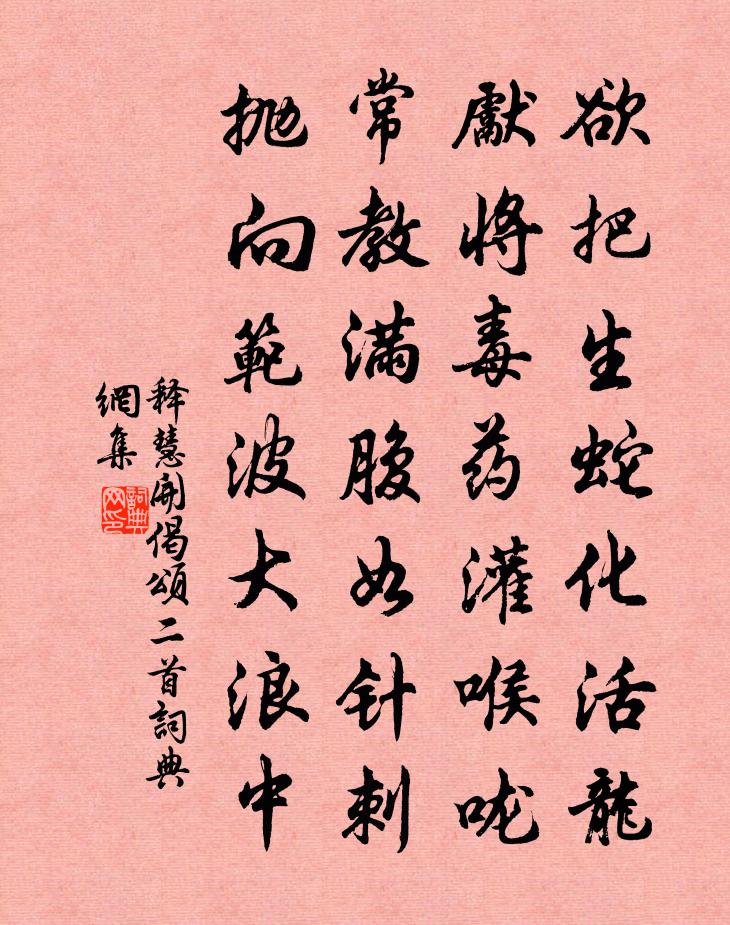 欲把生蛇化活龍
獻將毒药灌喉咙
常教满腹如针刺
抛向範波大浪中
释慧開偈頌二首詞典
網集
詞典
网印